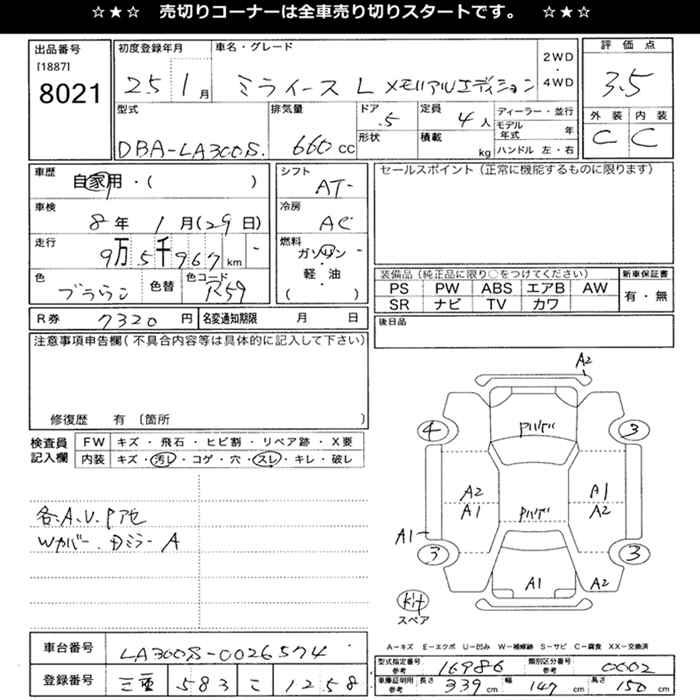 ☆★☆ 売切りコーナーは全車売り切りスタートです。 ☆★☆
出品番号
[1887]
8021
初度登録年月
25 1月
車名・グレード
ミライース L メモリアルエディション
2WD
4WD
評価点
3.5
外装 内装
C C
型式
DBA-LA300S.
排気量
660 cc
ドア
.5
形状
定員
4人
積載
kg
ディーラー・並行
モデル年式 年
ハンドル 左・右
車歴
自家用・( )
シフト
AT-
セールスポイント(正常に機能するものに限ります)
車検
8年 1月(29日)
冷房
AC
走行
9万5千967 km
燃料
ガソリン
・
軽・油
( )
色
ブラウン
色替
色コード
R59
装備品(純正品に限り○をつけてください)
PS PW ABS エアB AW
SR ナビ TV カワ
新車保証書
有・無
R券 7320円
名変通知期限 月 日
後日品
注意事項申告欄(不具合内容等は具体的に記入して下さい)
修復歴 有〔箇所 〕
検査員記入欄
FW キズ・飛石・ヒビ割・リペア跡・X要
内装 キズ・汚レ・コゲ・穴・スレ・キレ・破レ
各.A.U.P
Wカバー.Dミラー A
A2
4 3
A2 A1
A1 A2
A1
3 3
A1 A2
Kit
スペア
A-キズ E-エクボ U-凹み W-補修跡 S-サビ C-腐食 XX-交換済
車台番号 LA300S-0026574
登録番号 三重 583 こ 1258
型式指定番号 参考 16986
類別区分番号 参考 0002
車庫証明用 参考 長さ 339 cm 幅 147 cm 高さ 150 cm